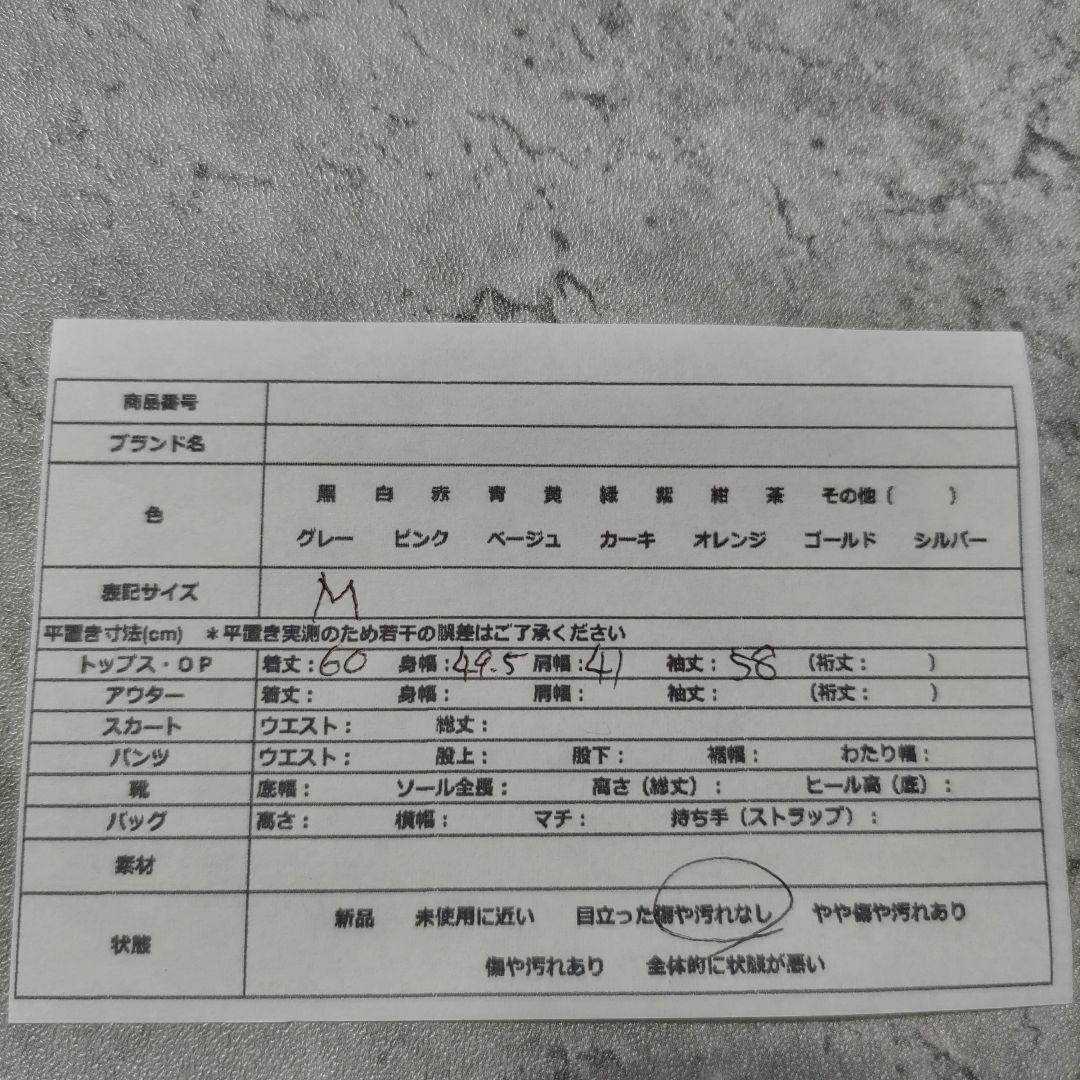 商品番号
ブランド名
色 黒 白 赤 青 黄 緑 紫 紺 茶 その他( )
グレー ピンク ベージュ カーキ オレンジ ゴールド シルバー
表記サイズ M
平置き寸法(cm) *平置き実測のため若干の誤差はご了承ください
トップス・OP 着丈:60 身幅:49.5 肩幅:41 袖丈:58 (裄丈: )
アウター 着丈: 身幅: 肩幅: 袖丈: (裄丈: )
スカート ウエスト: 総丈:
パンツ ウエスト: 股上: 股下: 裾幅: わたり幅:
靴 底幅: ソール全長: 高さ(総丈): ヒール高(底):
バッグ 高さ: 横幅: マチ: 持ち手(ストラップ):
素材
状態 新品 未使用に近い 目立った傷や汚れなし やや傷や汚れあり
傷や汚れあり 全体的に状態が悪い